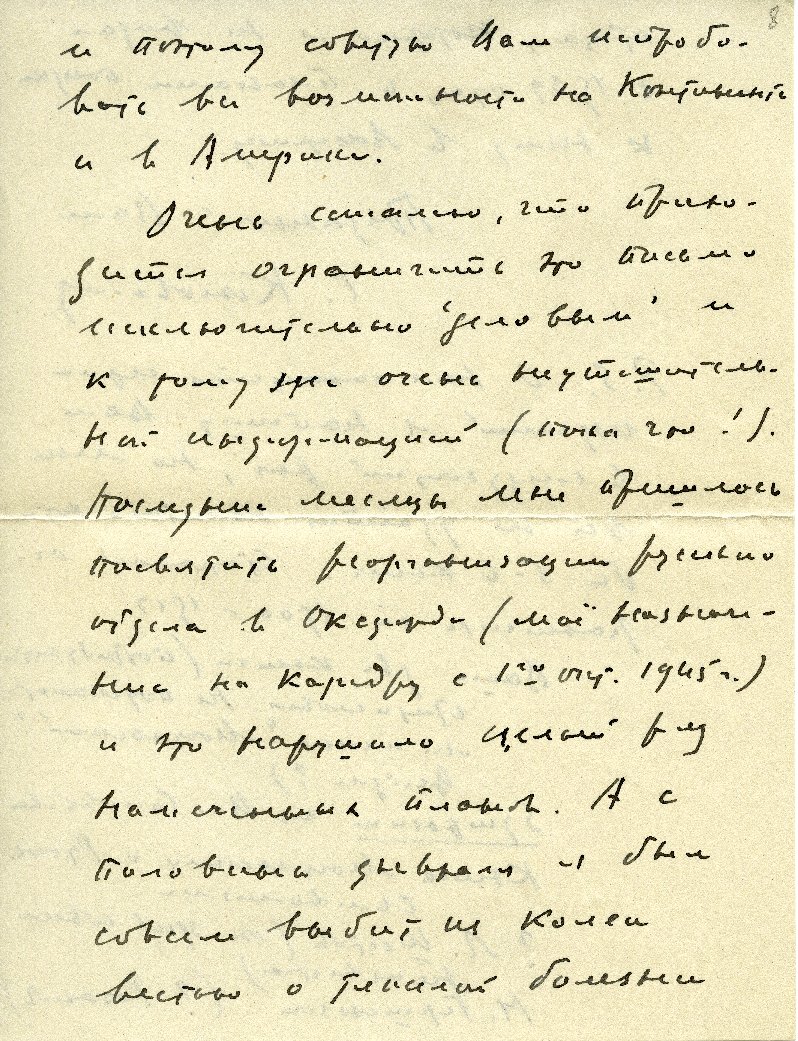 8
и поэтому советую Вам испробо-
вать все возможности на Континенте
и в Америке.
Очень сожалею, что прихо-
дится ограничить это письмо
исключительно 'деловым' и
к тому же очень неутешитель-
ной информацией (пока что!).
Последние месяцы мне пришлось
посвятить реорганизации русского
отдела в Оксфорде (моё назначе-
ние на кафедру с 1го окт. 1945 г.)
и это нарушило целый ряд
намеченных планов. А с
половины февраля я был
совсем выбит из колеи
вестью о тяжелой болезни